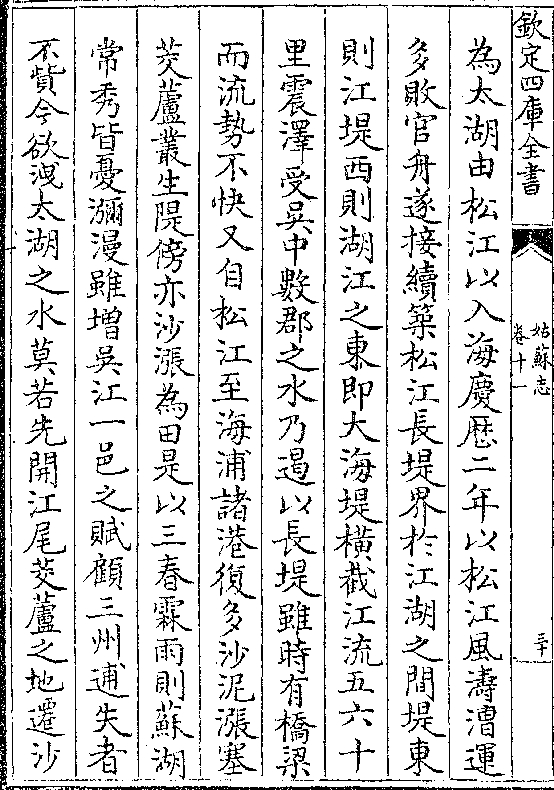 欽定四庫全書
姑蘇志
卷十一
三十
為太湖由松江以入海慶歴二年以松江風濤漕運
多敗官舟遂接續築松江長堤界於江湖之間堤東
則江堤西則湖江之東即大海堤橫截江流五六十
里震澤受吳中數郡之水乃遏以長堤雖時有橋梁
而流勢不快又自松江至海浦諸港復多沙泥漲塞
茭蘆叢生隄傍亦沙漲為田是以三春霖雨則蘇湖
常秀皆憂瀰漫雖增吳江一邑之賦顧三州逋失者
不貲今欲洩太湖之水莫若先開江尾茭蘆之地遷沙